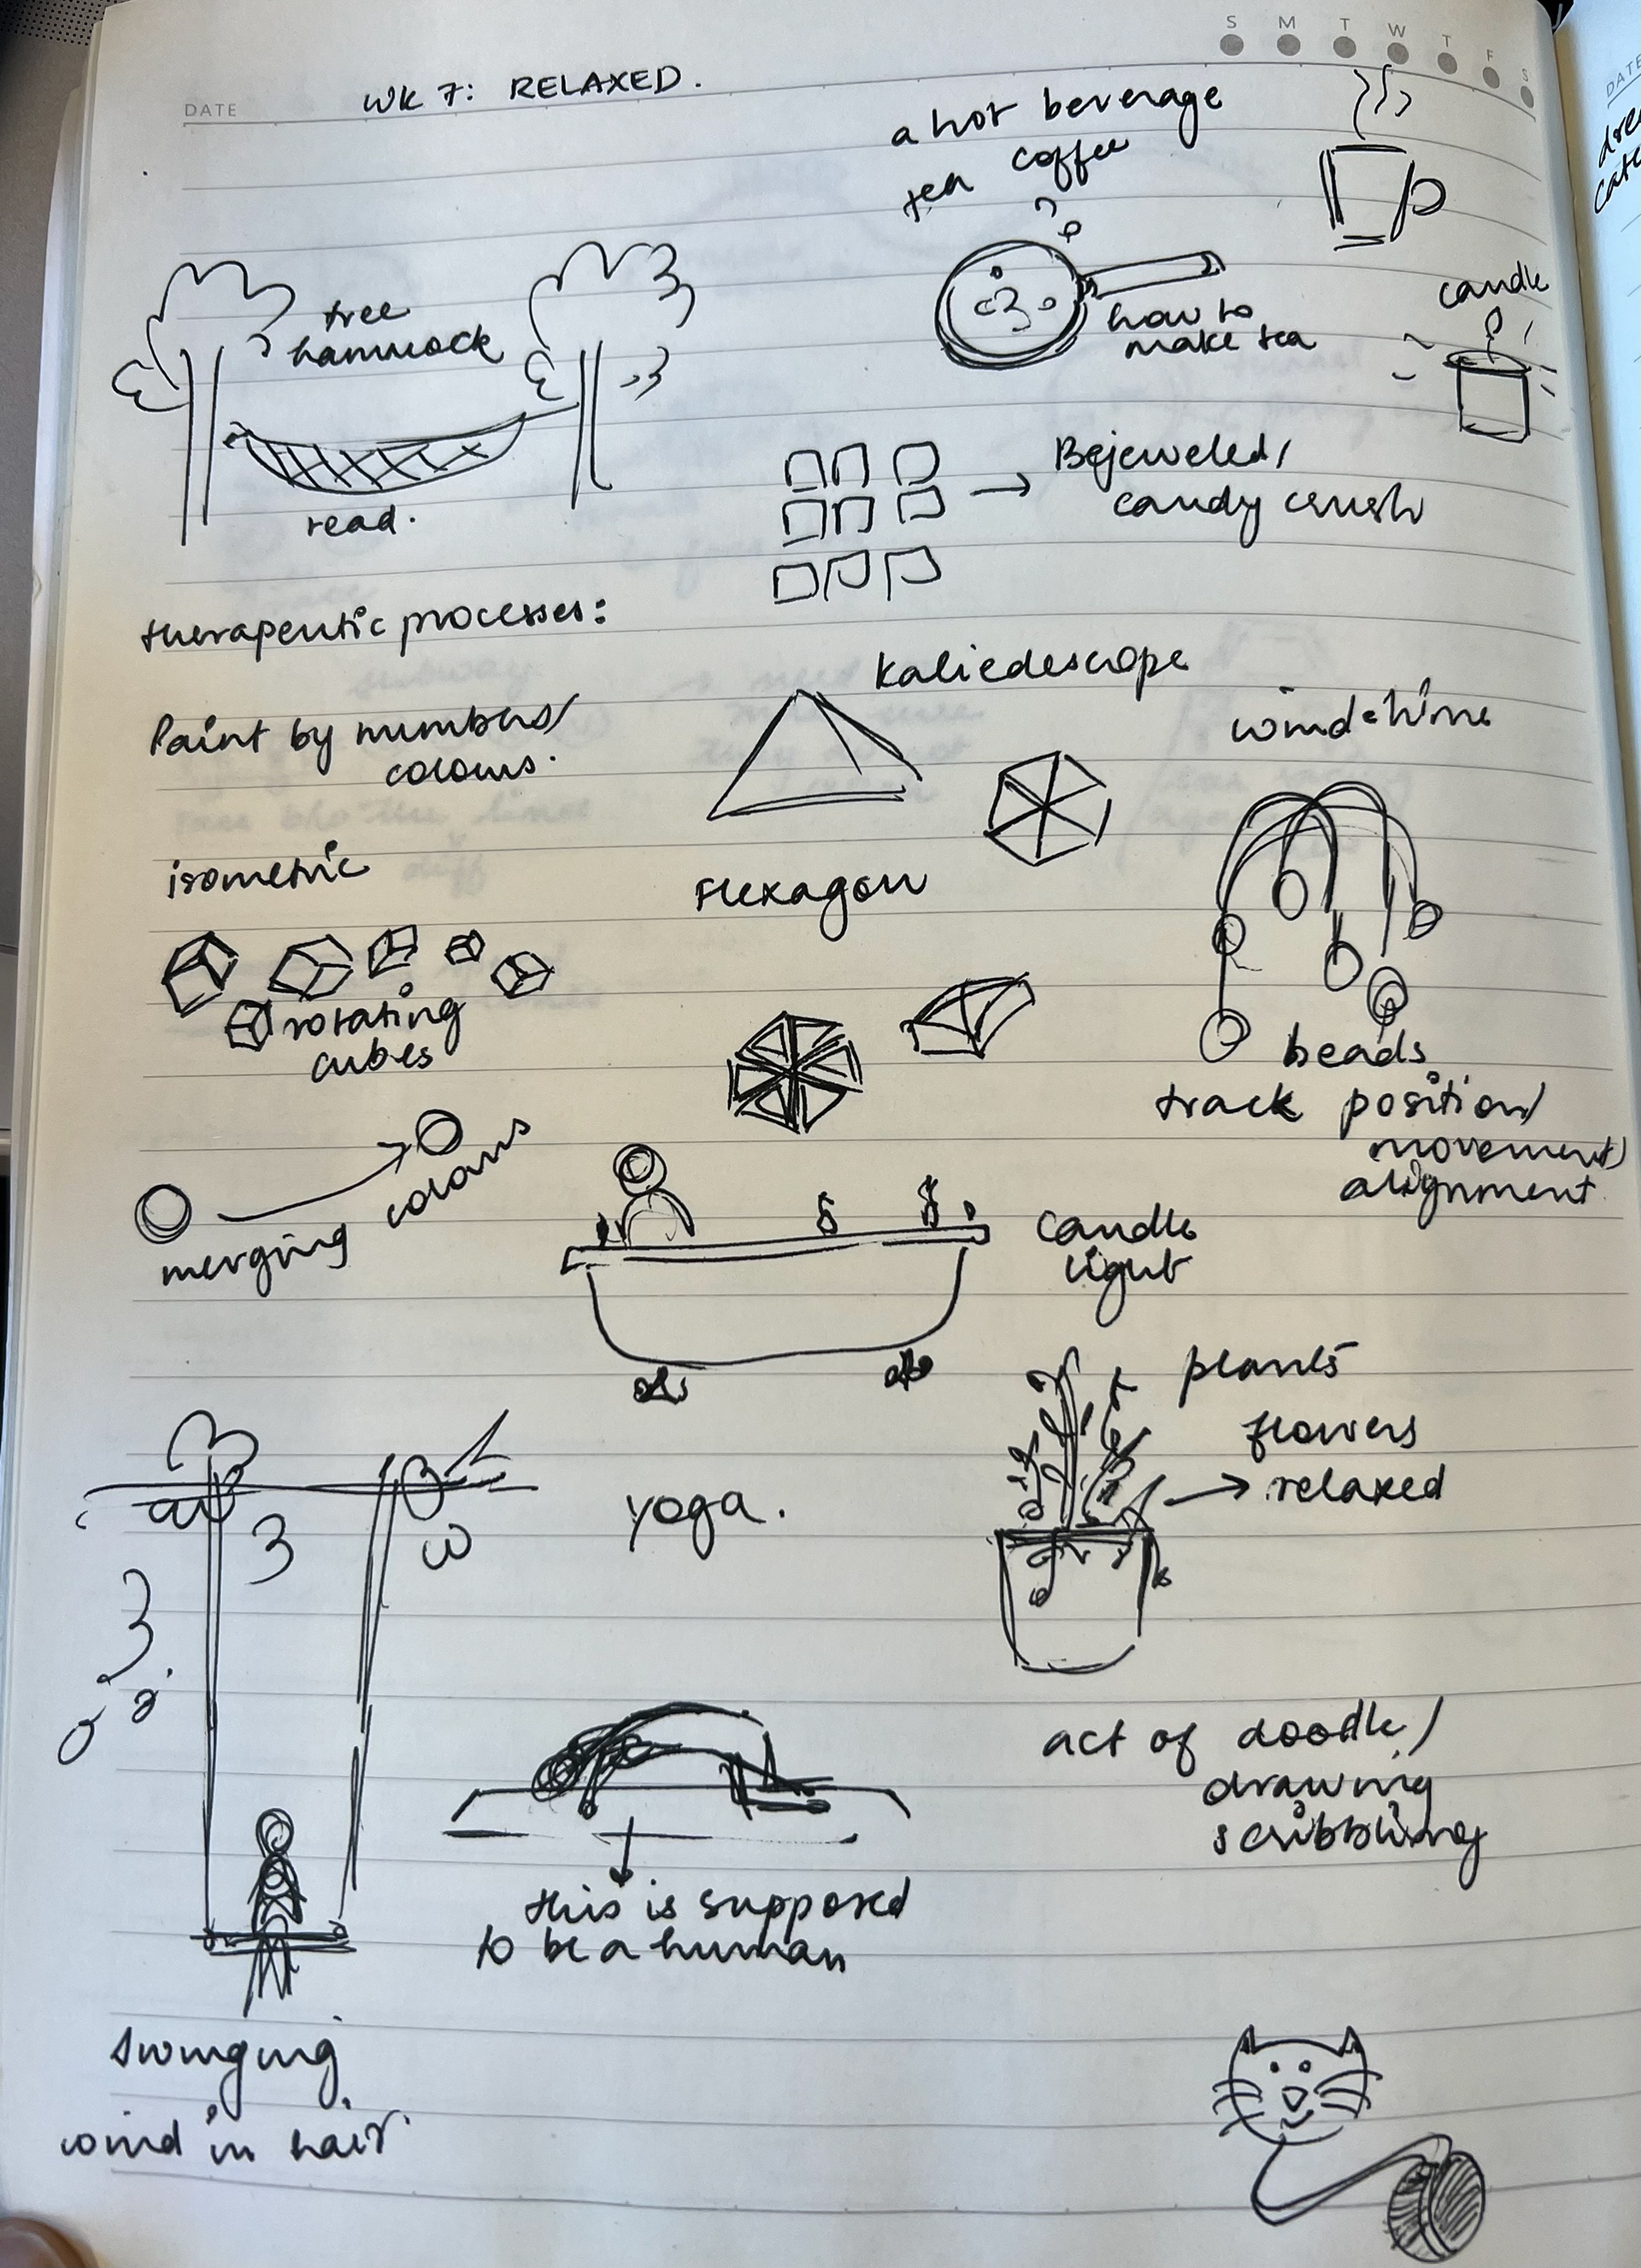 S M T W T F S
DATE
WK 7: RELAXED.
a hot beverage
tea coffee
how to
make tea
candle
tree
hammock
read.
Bejeweled/
candy crush
therapeutic processes:
Paint by numbers/
colours.
kaliedescope
windchime
isometric
rotating
cubes
Flexagon
beads
track position/
movement/
alignment
merging colours
candle
light
plants
flowers
→ relaxed
yoga.
this is supposed
to be a human
act of doodle/
drawing
scribbling
swinging
wind in hair
DATE